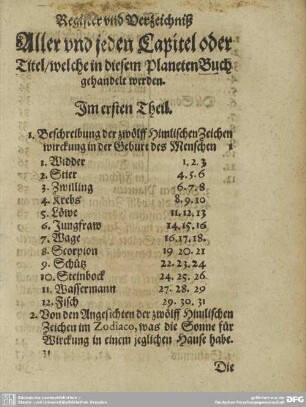 Register vnd Verzeichniß
Aller vnd jeden Capitel oder
Titel/welche in diesem Planeten Buch
gehandelt werden.
Im ersten Theil.
1. Beschreibung der zwölff Himlischen Zeichen
wirckung in der Geburt des Menschen 1
1. Widder 1.2.3
2. Stier 4.5.6
3. Zwilling 6.7.8
4. Krebs 8.9.10
5. Löwe 11.12.13
6. Jungfraw 14.15.16
7. Wage 16.17.18.
8. Scorpion 19 20.21
9. Schütz 22.23.24
10. Steinbock 24.25.26.
11. Wassermann 27. 28. 29
12. Fisch 29. 30. 31
2. Von den Angesichten der zwölff Himlischen
Zeichen im Zodiaco, was die Sonne für
Wirckung in einem jeglichen Hause habe.
31
Die
DFG